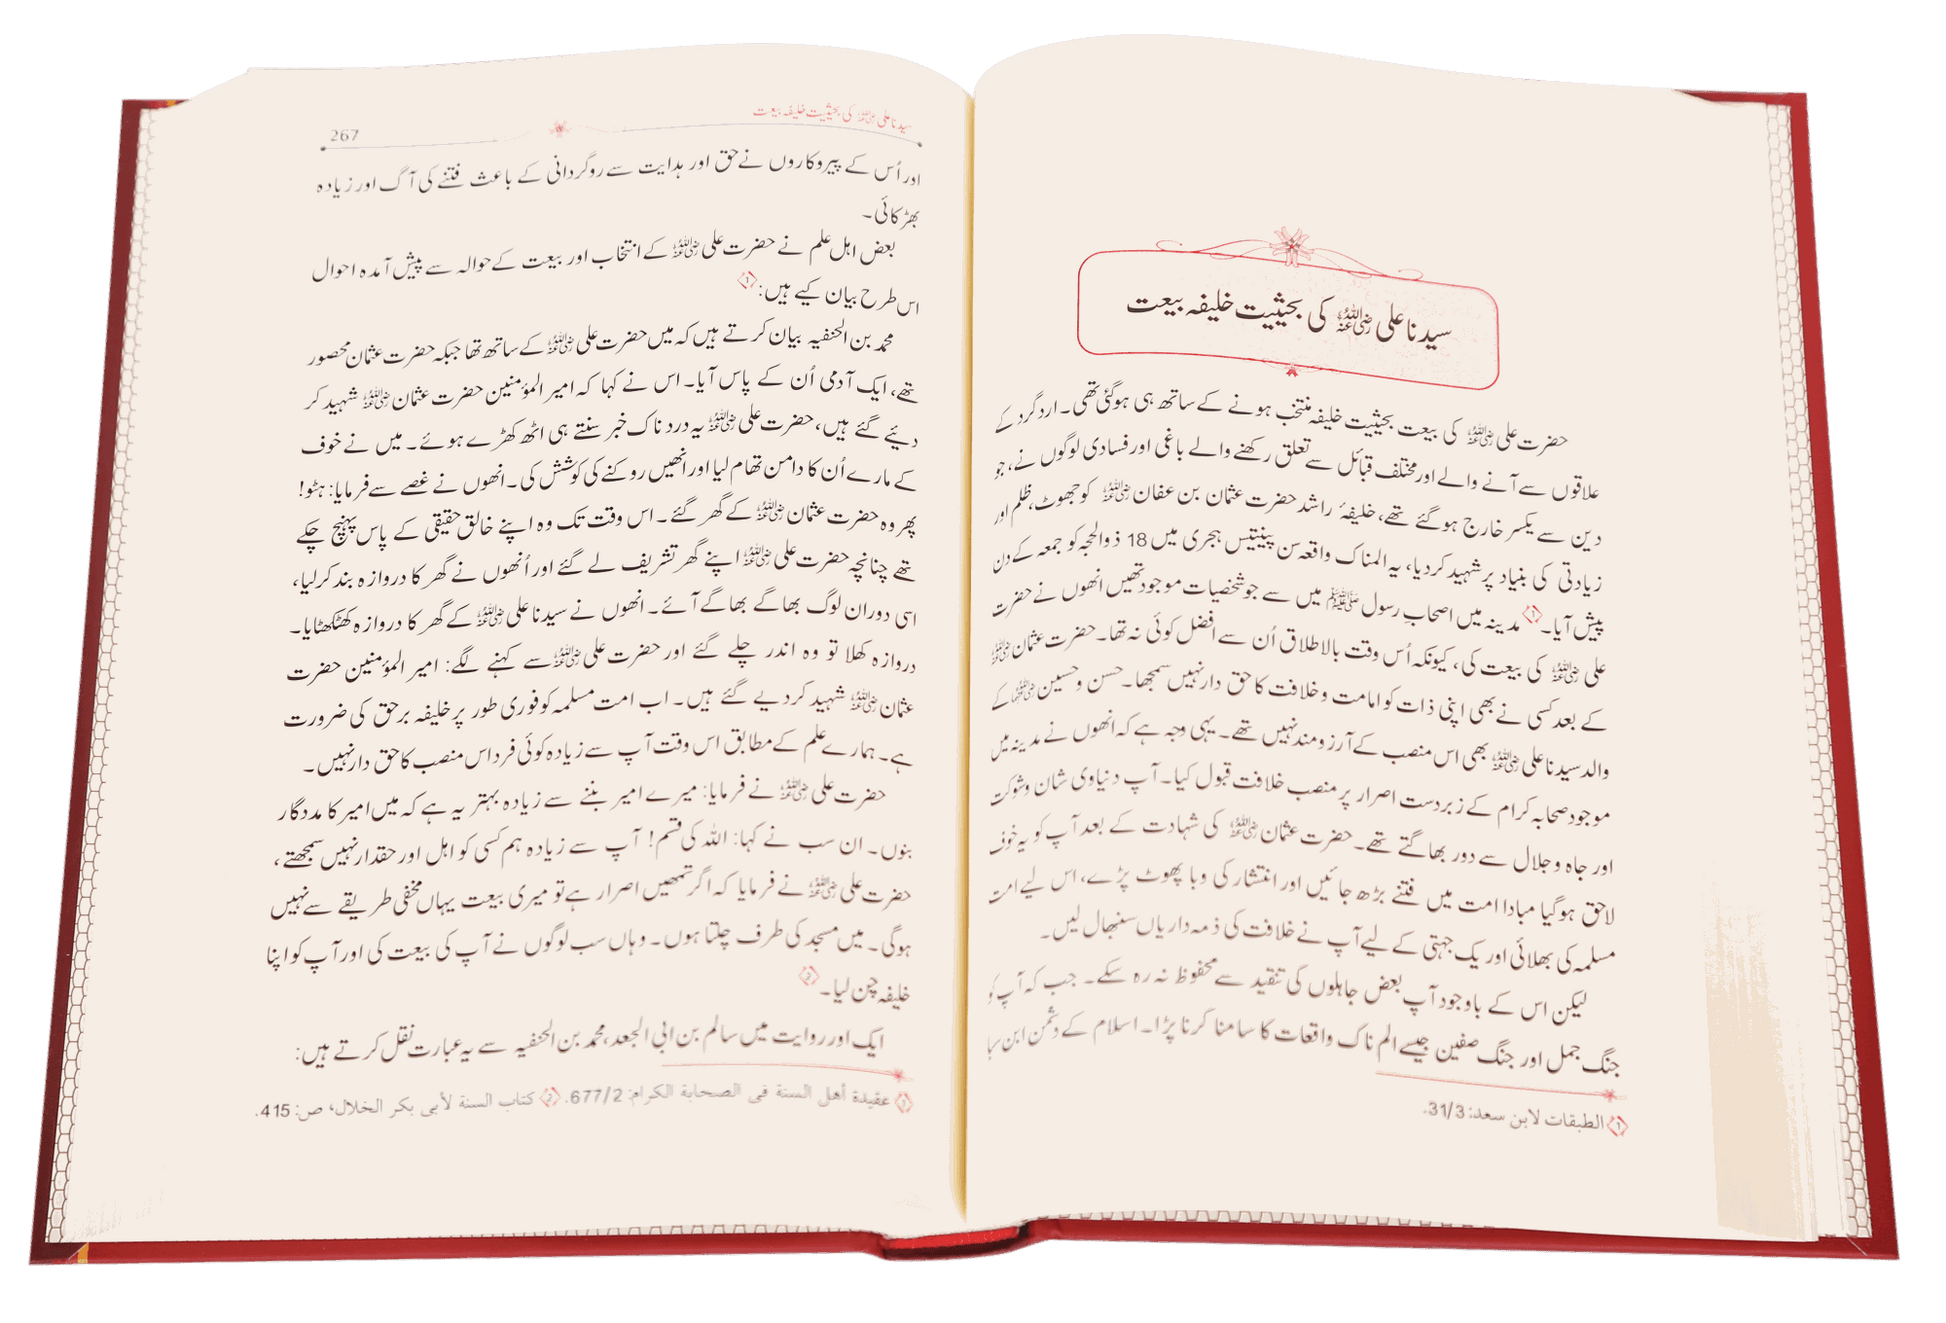 سیدنا علی رضی اللہ عنہ کی بحیثیت خلیفہ بیعت
حضرت علی رضی اللہ عنہ کی بیعت بحیثیت خلیفہ منتخب ہونے کے ساتھ ہی ہوگئی تھی۔ اردگرد کے
علاقوں سے آنے والے اور مختلف قبائل سے تعلق رکھنے والے باغی اور فسادی لوگوں نے، جو
دین سے یکسر خارج ہوگئے تھے، خلیفۂ راشد حضرت عثمان بن عفان رضی اللہ عنہ کو جھوٹ، ظلم اور
زیادتی کی بنیاد پر شہید کردیا، یہ المناک واقعہ سن پینتیس ہجری میں 18 ذوالحجہ کو جمعہ کے دن
پیش آیا۔ ① مدینہ میں اصحاب رسول ﷺ میں سے جو شخصیات موجود تھیں انھوں نے حضرت
علی رضی اللہ عنہ کی بیعت کی، کیونکہ اُس وقت بالاطلاق اُن سے افضل کوئی نہ تھا۔ حضرت عثمان رضی اللہ عنہ
کے بعد کسی نے بھی اپنی ذات کو امامت و خلافت کا حق دار نہیں سمجھا۔ حسن و حسین رضی اللہ عنہما کے
والد سیدنا علی رضی اللہ عنہ بھی اس منصب کے آرزومند نہیں تھے۔ یہی وجہ ہے کہ انھوں نے مدینہ میں
موجود صحابہ کرام کے زبردست اصرار پر منصب خلافت قبول کیا۔ آپ دنیاوی شان و شوکت
اور جاہ و جلال سے دور بھاگتے تھے۔ حضرت عثمان رضی اللہ عنہ کی شہادت کے بعد آپ کو یہ خوف
لاحق ہوگیا مبادا امت میں فتنے بڑھ جائیں اور انتشار کی وبا پھوٹ پڑے، اس لیے امت
مسلمہ کی بھلائی اور یک جہتی کے لیے آپ نے خلافت کی ذمہ داریاں سنبھال لیں۔
لیکن اس کے باوجود آپ بعض جاہلوں کی تنقید سے محفوظ نہ رہ سکے۔ جب کہ آپ کو
جنگ جمل اور جنگ صفین جیسے الم ناک واقعات کا سامنا کرنا پڑا۔ اسلام کے دشمن ابن سبا
① الطبقات لابن سعد: 31/3.
سیدنا علی رضی اللہ عنہ کی بحیثیت خلیفہ بیعت
267
اور اُس کے پیروکاروں نے حق اور ہدایت سے روگردانی کے باعث فتنے کی آگ اور زیادہ
بھڑکائی۔
بعض اہل علم نے حضرت علی رضی اللہ عنہ کے انتخاب اور بیعت کے حوالہ سے پیش آمدہ احوال
اس طرح بیان کیے ہیں: ①
محمد بن الحنفیہ بیان کرتے ہیں کہ میں حضرت علی رضی اللہ عنہ کے ساتھ تھا جبکہ حضرت عثمان محصور
تھے، ایک آدمی اُن کے پاس آیا۔ اس نے کہا کہ امیر المؤمنین حضرت عثمان رضی اللہ عنہ شہید کر
دیئے گئے ہیں، حضرت علی رضی اللہ عنہ یہ درد ناک خبر سنتے ہی اٹھ کھڑے ہوئے۔ میں نے خوف
کے مارے اُن کا دامن تھام لیا اور انھیں روکنے کی کوشش کی۔ انھوں نے غصے سے فرمایا: ہٹو!
پھر وہ حضرت عثمان رضی اللہ عنہ کے گھر گئے۔ اس وقت تک وہ اپنے خالق حقیقی کے پاس پہنچ چکے
تھے چنانچہ حضرت علی رضی اللہ عنہ اپنے گھر تشریف لے گئے اور اُنھوں نے گھر کا دروازہ بند کرلیا،
اسی دوران لوگ بھاگے بھاگے آئے۔ انھوں نے سیدنا علی رضی اللہ عنہ کے گھر کا دروازہ کھٹکھٹایا۔
دروازہ کھلا تو وہ اندر چلے گئے اور حضرت علی رضی اللہ عنہ سے کہنے لگے: امیر المؤمنین حضرت
عثمان رضی اللہ عنہ شہید کردیے گئے ہیں۔ اب امت مسلمہ کو فوری طور پر خلیفہ برحق کی ضرورت
ہے۔ ہمارے علم کے مطابق اس وقت آپ سے زیادہ کوئی فرد اس منصب کا حق دار نہیں۔
حضرت علی رضی اللہ عنہ نے فرمایا: میرے امیر بننے سے زیادہ بہتر یہ ہے کہ میں امیر کا مددگار
بنوں۔ ان سب نے کہا: اللہ کی قسم! آپ سے زیادہ ہم کسی کو اہل اور حقدار نہیں سمجھتے،
حضرت علی رضی اللہ عنہ نے فرمایا کہ اگر تمھیں اصرار ہے تو میری بیعت یہاں مخفی طریقے سے نہیں
ہوگی۔ میں مسجد کی طرف چلتا ہوں۔ وہاں سب لوگوں نے آپ کی بیعت کی اور آپ کو اپنا
خلیفہ چن لیا۔ ②
ایک اور روایت میں سالم بن ابی الجعد، محمد بن الحنفیہ سے یہ عبارت نقل کرتے ہیں:
① عقيدة أهل السنة في الصحابة الكرام: 677/2. ② كتاب السنة لأبي بكر الخلال، ص: 415.